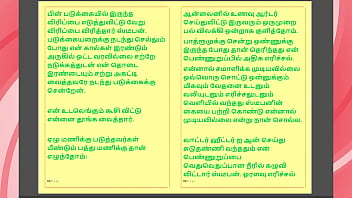 பின் படுக்கையில் இருந்த
விரிப்பை எடுத்துவிட்டு வேறு
விரிப்பை விரித்தார் ஸ்டீபன்.
படுக்கையறைக்கு நடந்து செல்லும்
போது என் கால்கள் இரண்டும்
அருகில் ஒட்ட வரவில்லை சற்றே
நடுக்கத்துடன் என் தொடை
இரண்டையும் சற்று அகட்டி
வைத்தவாறே நடந்து படுக்கைக்கு
சென்றேன்.
என் உடலெங்கும் கூசி விட்டு
என்னை தூங்க வைத்தார்.
ஏழு மணிக்கு படுத்தவர்கள்
மீண்டும் பத்து மணிக்கு தான்
எழுந்தோம்:
ஆன்லைனில் உணவு ஆர்டர்
செய்துவிட்டு இருவரும் ஒருமுறை
பல் விலக்கி ஒன்றாக குளித்தோம்.
பாத்ரூமுக்கு சென்று ஒண்ணுக்கு
இருந்த போது தான் தெரிந்தது என்
பெண்ணுறுப்பில் அதிக எரிச்சல்.
என்னால் சமாளிக்க முடியவில்லை
ஒவ்வொரு சொட்டு ஒண்ணுக்கும்
மிகவும் வேதனை உடனும்
வலியுடனும் எரிச்சலுடனும்
வெளியில் வந்தது ஸ்டீபனின்
கையை பற்றி கொண்டு என்னால்
முடியவில்லை என்று நான் சொல்ல.
வாட்டர் ஹீட்டர் ஐ ஆன் செய்து
சுடுதண்ணி வந்ததும் என்
பெண்ணுறுப்பை
வெதுவெதுப்பான நீரில் கழுவி
விட்டார் ஸ்டீபன். ஓரளவு எரிச்சல்